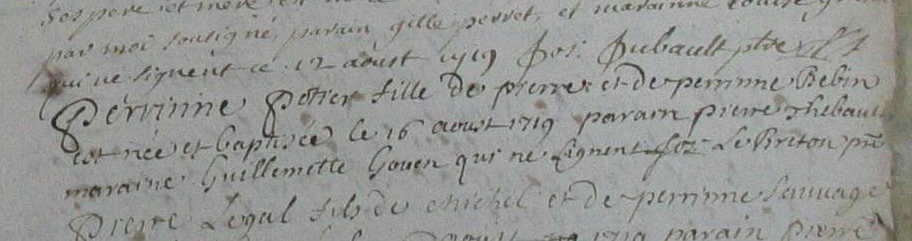 ses pere et mere
par moi sousigné, parain gille perret, et maraine Louise
qui ne signent ce 12 aoust 1719 Jos: Dubault ptre
Perrinne Potier fille de pierre et de perrinne Bebin
est née et baptisée le 16 aoust 1719 parain pierre Thebault
maraine Guillemette Gouen qui ne signent Joz Le Breton pre
Pierre Legal fils de Michel et de perrinne Sauvage
1719 parain pierre